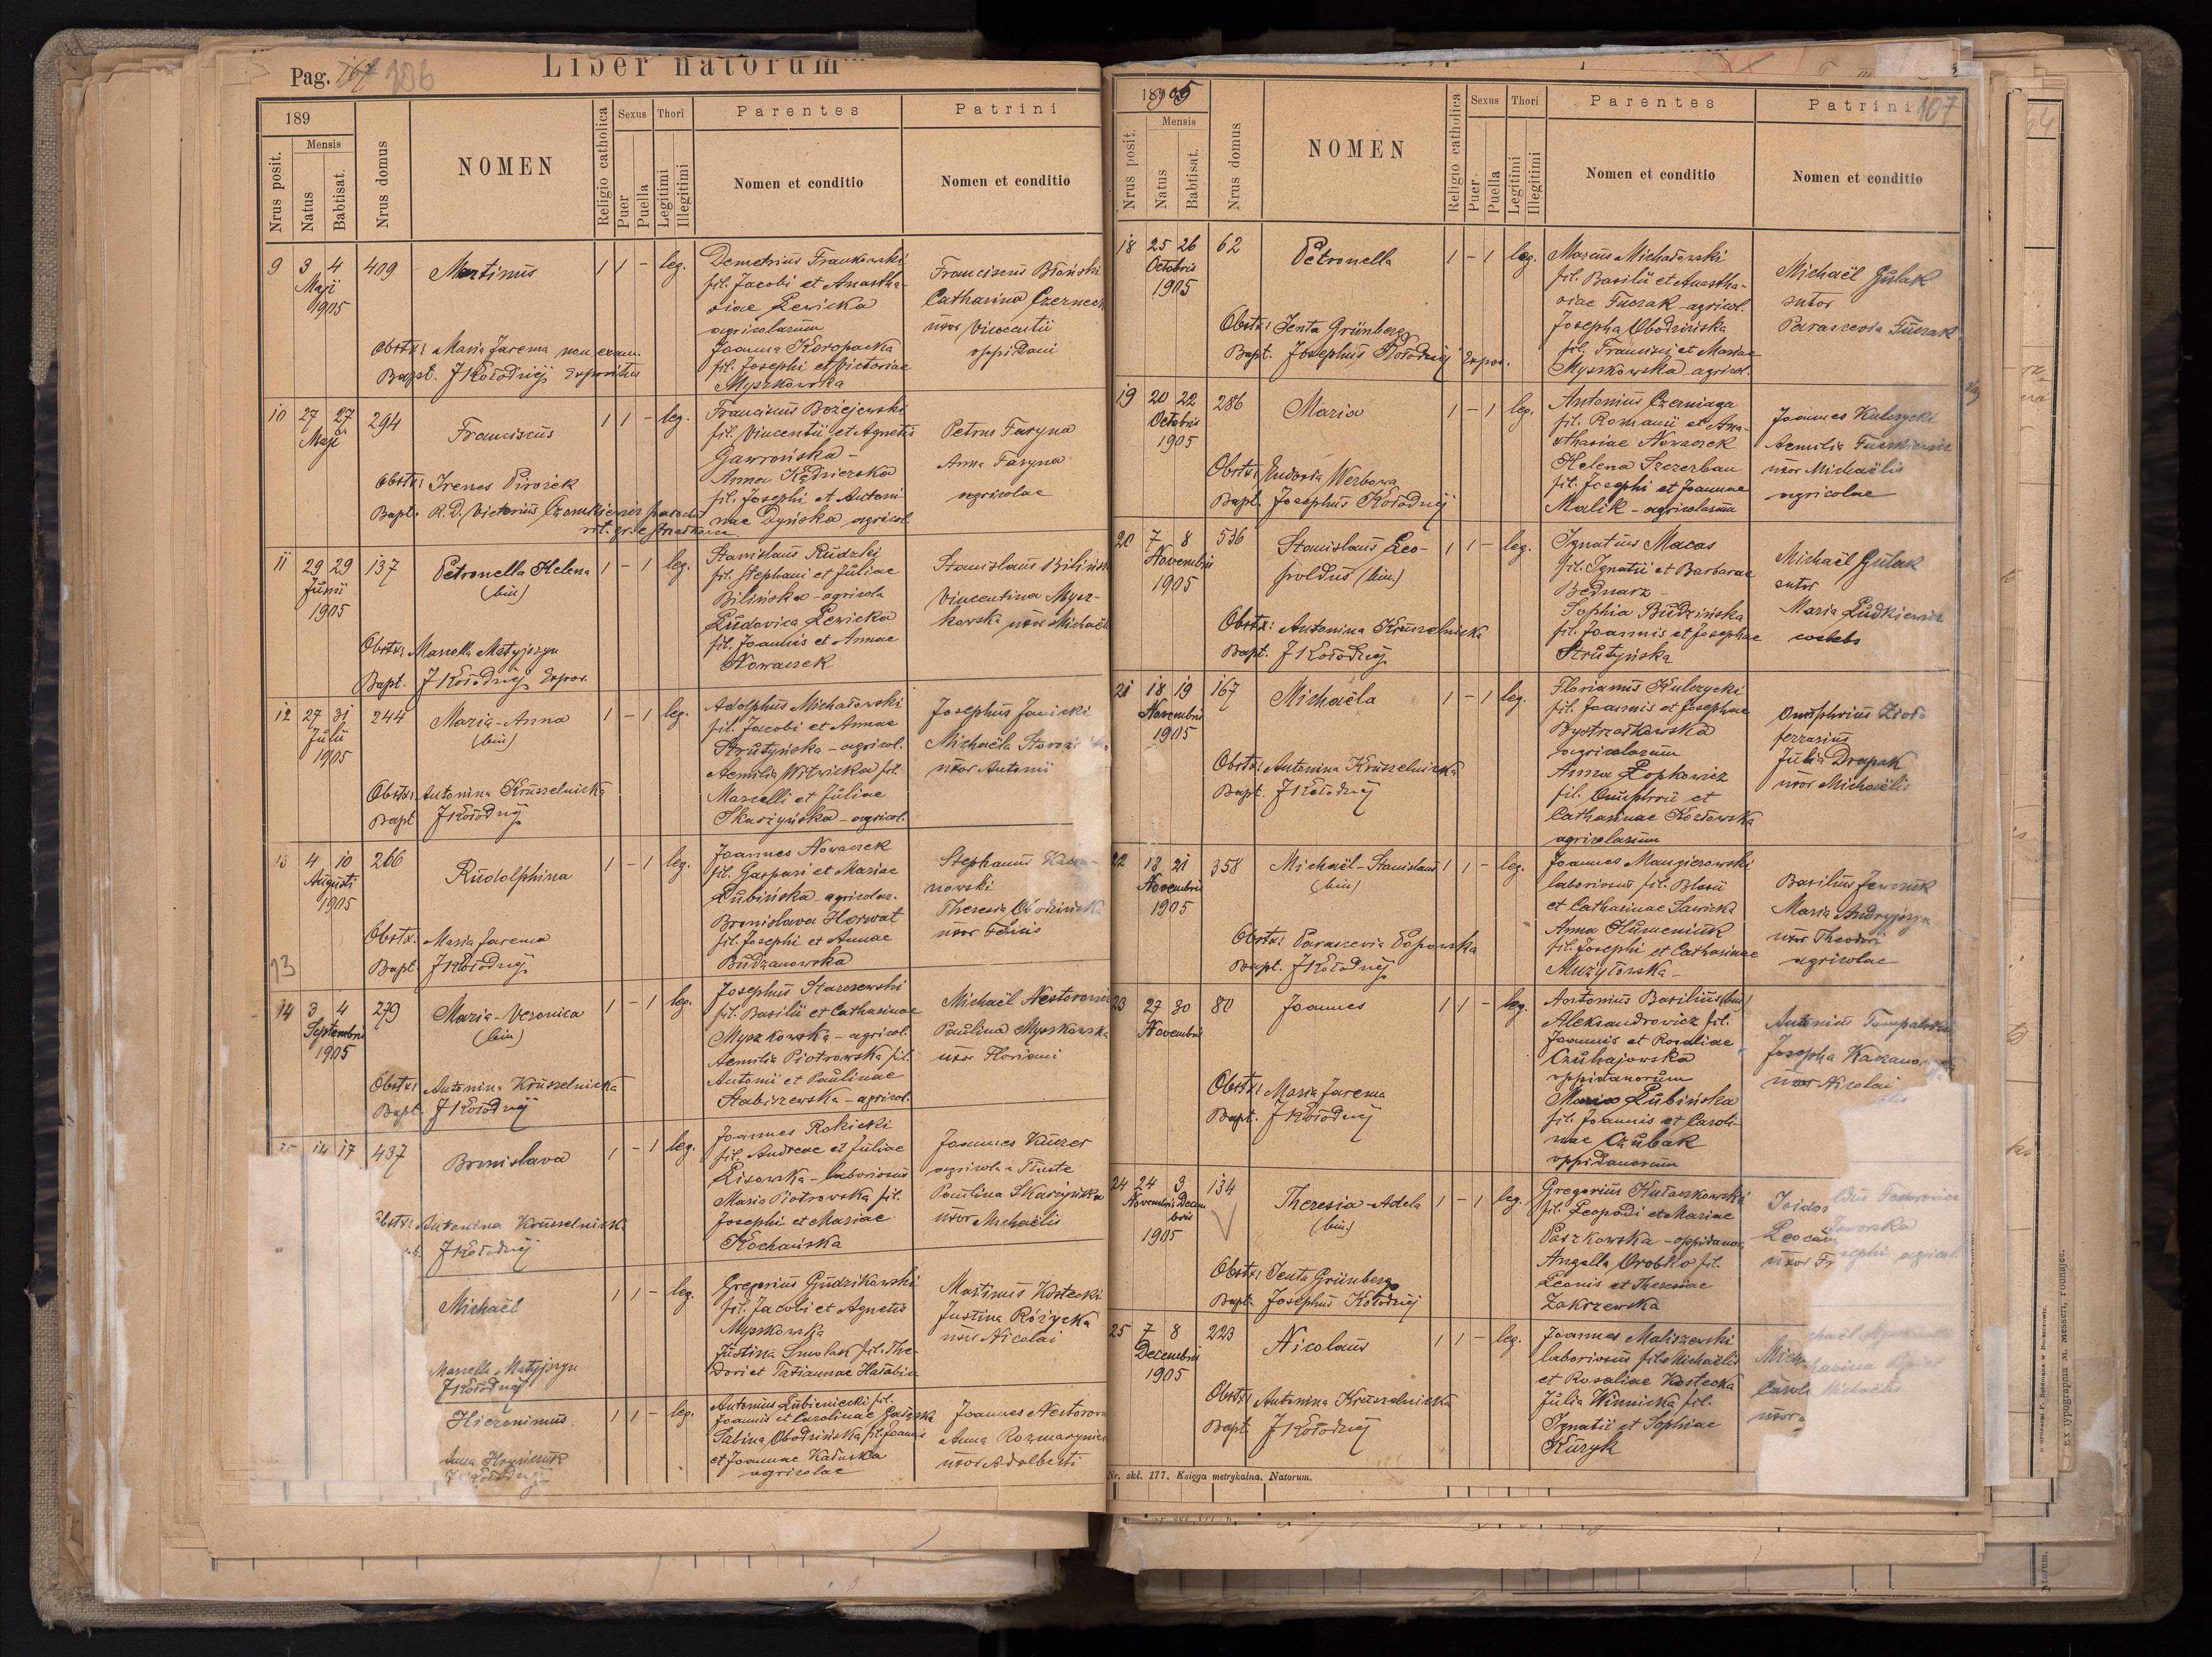 Pag. 167 186
Liber natorum
189
Nrus posit.
Mensis
Natus
Babtisat.
Nrus domus
NOMEN
Religio catholica
Sexus
Puer
Puella
Thori
Legitimi
Illegitimi
Parentes
Nomen et conditio
Patrini
Nomen et conditio
9 3 4 409 Martinus 1 1 - leg.
Maji
1905
Obstx: Maria Jarema non exam.
Bapt. J Kołodzij Expositus
Demetrius Frankowski
fil. Jacobi et Anastha-
siae Lewicka
agricolarum
Joanna Koropacka
fil. Josephi et Victoriae
Myszkowska
Franciscus Błoński
Catharina Czerneck
uxor Vincentii
oppidani
10 27 27 294 Franciscus 1 1 - leg.
Maji
Obstx: Irenes Pirożek
Bapt. R. D. Victorius parochus
rit. gr.
Franciscus Bożejewski
fil. Vincentii et Agnetis
Gawrońska -
Anna Kądzierska
fil. Josephi et Antoni
nae Dyńska agricol.
Petrus Faryna
Anna Faryna
agricolae
11 29 29 137 Petronella Helena 1 - 1 leg.
Junii (bin)
1905
Obstx: Marcella Matyjczyn
Bapt. J Kołodzij Expos.
Stanislaus Rudzki
fil. Stephani et Juliae
Bilińska - agricola
Ludovica Lewicka
fil. Joannis et Annae
Nowaczek
Stanislaus Bilińsk
Vincentina Mysz-
kowska uxor Michaël
12 27 31 244 Maria-Anna 1 - 1 leg.
Julii (bin)
1905
Obstx: Antonina Krusselnicka
Bapt J Kołodzij
Adolphus Michałowski
fil. Jacobi et Annae
Strutyńska - agricol.
Aemilia Witwicka fil.
Marcelli et Juliae
Skarżyńska - agricol.
Josephus Janicki
Michaëla
uxor Antonii
13 4 10 266 Rudolphina 1 - 1 leg.
Augusti
1905
Obstx: Maria Jarema
13 Bapt. J Kołodzij
Joannes Nowaczek
fil. Gaspari et Mariae
Łubińska - agricolar.
Bronislava Horwat
fil. Josephi et Annae
Budzanowska
Stephanus
nowski
Theresia Obodzińska
uxor Felicis
14 3 4 279 Maria-Veronica 1 - 1 leg.
Septembris (bin)
1905
Obstx: Antonina Krusselnicka
Bapt. J Kołodzij
Josephus Starczewski
fil. Basilii et Catharinae
Myszkowska - agricol.
Aemilia Piotrowska fil.
Antonii et Paulinae
Stabiszewska - agricol.
Michaël Nestorowicz
Paulina Myszkowska
uxor Floriani
14 17 437 Bronislava 1 - 1 leg.
Obstx: Antonina Krusselnicka
J Kołodzij
Joannes Rokicki
fil. Andreae et Juliae
Lisowska - laboriosus
Maria Piotrowska fil.
Josephi et Mariae
Kochańska
Joannes Kaucer
agricola
Paulina Skarżyńska
uxor Michaëlis
Michaël 1 1 - leg.
Marcella Matyjczyn
J Kołodzij
Gregorius Gudzikowski
fil. Jacobi et Agnetis
Myszkowska
Justina Smolak fil. The-
dori et Tatiannae Hałabica
Martinus Kostecki
Justina Różycka
uxor Nicolai
Hieronimus 1 1 - leg.
Anna
J Kołodzij
Antonius Łubieniecki fil.
Joannis et Carolinae
Sabina Obodzińska fil. Joannis
et Joannae Kałuska
agricolae
Joannes Nestorow
Anna Rozmarynie
uxor Adalberti
1905
107
Nrus posit.
Mensis
Natus
Babtisat.
Nrus domus
NOMEN
Religio catholica
Sexus
Puer
Puella
Thori
Legitimi
Illegitimi
Parentes
Nomen et conditio
Patrini
Nomen et conditio
18 25 26 62 Petronella 1 - 1 leg.
Octobris
1905
Obstx: Jenta Grünberg
Bapt. Josephus Kołodzij Expos.
Marcus Michałowski
fil. Basilii et Anastha-
siae Tuczak - agricol.
Josepha Obodzińska
fil. Francisci et Mariae
Myszkowska - agricol.
Michaël Gulak
sutor
Parascevia Tuczak
19 20 22 286 Maria 1 - 1 leg.
Octobris
1905
Obstx: Eudoxia Werbowa
Bapt. Josephus Kołodzij
Antonius Czerniaga
fil. Romani et Ana-
sthasiae Nowaczek
Helena Szczerban
fil. Josephi et Joannae
Malik - agricolarum
Joannes Kulczycki
Aemilia
uxor Michaëlis
agricolae
20 7 8 536 Stanislaus Leo- 1 1 - leg.
Novembris poldus (bin)
1905
Obstx: Antonina Kruszelnicka
Bapt. J Kołodzij
Ignatius Macas
fil. Ignatii et Barbarae
Bednarz -
Sophia Budzińska
fil. Joannis et Josephae
Strutyńska
Michaël Gulak
sutor
Maria Ludkiewicz
coelebs
21 18 19 167 Michaëla 1 - 1 leg.
Novembris
1905
Obstx: Antonina Krusselnicka
Bapt. J Kołodzij
Florianus Kulczycki
fil. Joannis et Josephae
Bystrzałkowska
agricolarum
Anna Łopkowicz
fil. Onuphrii et
Catharinae Kozłowska
agricolarum
Onuphrius
ferrarius
Julia Drapak
uxor Michaëlis
22 18 21 358 Michaël-Stanislaus 1 1 - leg.
Novembris (bin)
1905
Obstx: Parascevia Popowska
Bapt. J Kołodzij
Joannes Mangierowski
laboriosus fil. Blasii
et Catharinae Sawicka
Anna Humeniuk
fil. Josephi et Catharinae
Mużyłowska -
Basilius
Maria Andryjczyn
uxor Theodori
agricolae
23 27 30 80 Joannes 1 1 - leg.
Novembris
Obstx: Maria Jarema
Bapt. J Kołodzij
Antonius Basilius (bin)
Aleksandrovicz fil.
Joannis et Rosaliae
Czuhajowska
oppidanorum
Maria Łubińska
fil. Joannis et Caroli-
nae Czubak
oppidanorum
Antonius
Josepha
uxor Nicolai
24 24 3 134 Theresia-Adela 1 - 1 leg.
Novembris Decem
bris (bin)
1905
Obstx: Jenta Grünberg
Bapt. Josephus Kołodzij
Gregorius Kułaczkowski
fil. Leopoldi et Mariae
Paszkowska - oppidanor.
Angella Orobko fil.
Leonis et Theresiae
Zakrzewska
Isidor
Leocad
uxor Fr
25 7 8 223 Nicolaus 1 1 - leg.
Decembris
1905
Obstx: Antonina Kruszelnicka
Bapt. J Kołodzij
Joannes Maliszewski
laboriosus fil. Michaëlis
et Rosaliae Kostecka
Julia Winnicka fil.
Ignatii et Sophiae
Kuzyk
Mich
uxor
Nr. skł. 177. Księga metrykalna. Natorum.